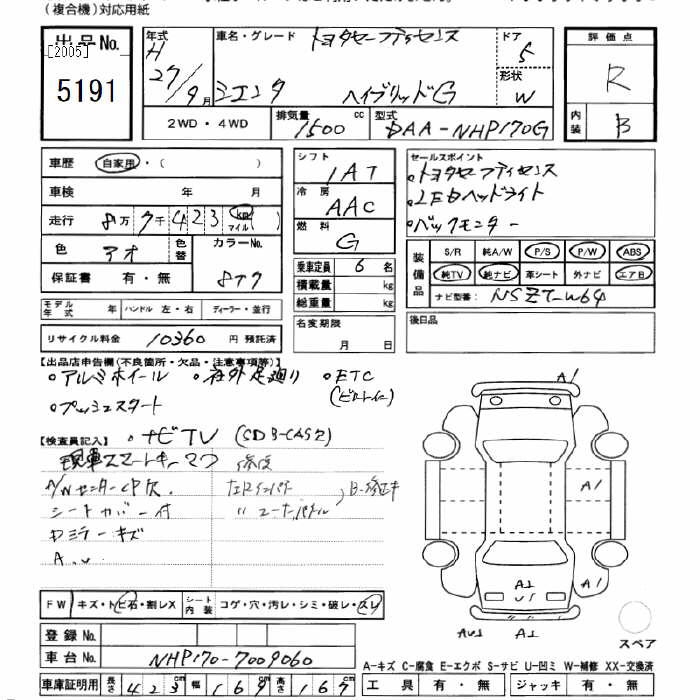 (複合機)対応用紙
出品No.
[2005]
5191
年式 H 27/9月
車名・グレード トヨタセーフティセンス
シエンタ ハイブリッドG
ドア 5
形状 W
2WD・4WD
排気量 1500 cc
型式 DAA-NHP170G
評価点 R
内装 B
車歴 自家用・( )
車検 年 月
走行 8万7千423 km マイル( )
色 アオ
色替
カラーNo. 8T7
保証書 有・無
モデル年式 年 ハンドル 左・右 ディーラー・並行
リサイクル料金 10360 円 預託済
シフト IAT
冷房 AAC
燃料 G
乗車定員 6 名
積載量 kg
総重量 kg
名変期限
月 日
セールスポイント
・トヨタセーフティセンス
・LEDヘッドライト
・バックモニター
装備品
S/R 純A/W P/S P/W ABS
純TV 純ナビ 革シート 外ナビ エアB
ナビ型番: NSZT-W64
後日品
【出品店申告欄(不良箇所・欠品・注意事項等)】
・アルミホイール ・社外足廻り ・ETC
(ビルトイン)
・プッシュスタート
【検査員記入】 ・ナビTV (CD B-CAS欠)
現車スマートキー 修復
A/Wセンター CP欠.
シートカバー付
Rミラーキズ
A.U
FW キズ・トビ石・割レX
シート内装 コゲ・穴・汚レ・シミ・破レ・スレ
登録No.
車台No. NHP170-7009060
車庫証明用 長さ 423cm 幅 169cm 高さ 167cm
A1
A1
A1
A1
U1
AU1
A1
スペア
A-キズ C-腐食 E-エクボ S-サビ U-凹ミ W-補修 XX-交換済
工具 有・無 ジャッキ 有・無